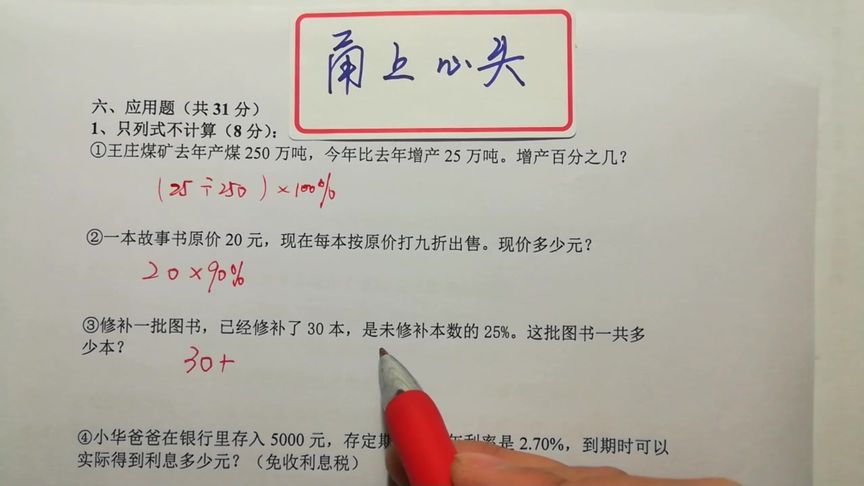 甬上心头
六、应用题（共31分）
1、只列式不计算（8分）：
①王庄煤矿去年产煤250万吨，今年比去年增产25万吨。增产百分之几？
(25÷250)×100%
②一本故事书原价20元，现在每本按原价打九折出售。现价多少元？
20×90%
③修补一批图书，已经修补了30本，是未修补本数的25%。这批图书一共多
少本？
30+
④小华爸爸在银行里存入5000元，存定期 年利率是2.70%，到期时可以
实际得到利息多少元？（免收利息税）